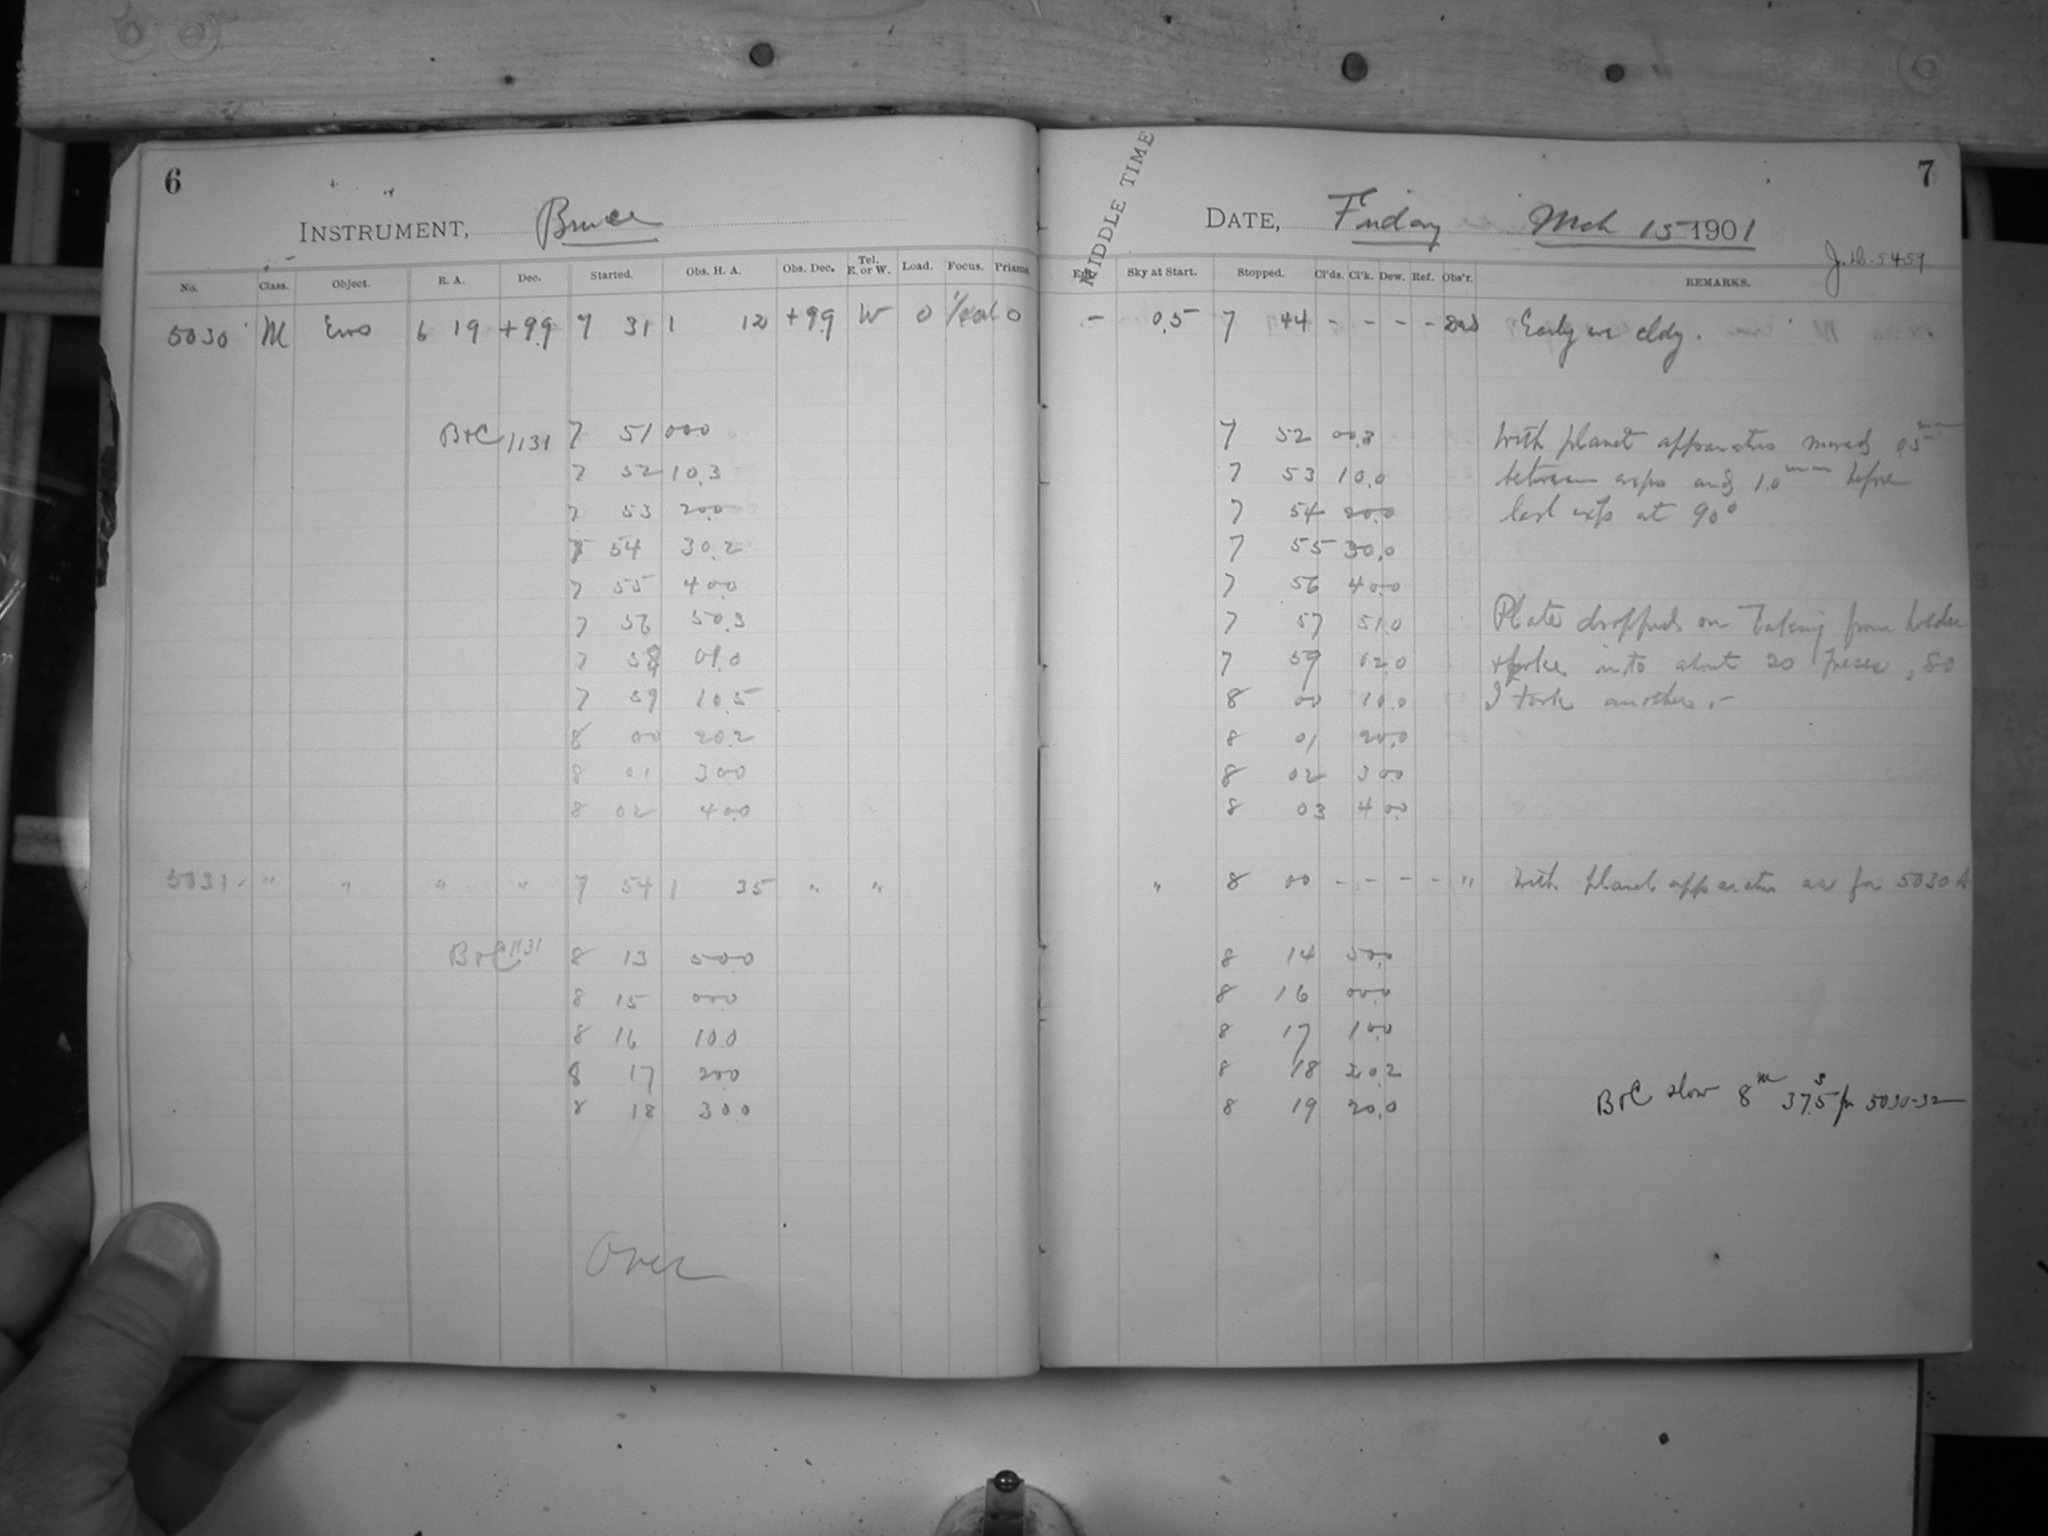 6
INSTRUMENT, Bruce
No. Class. Object. R. A. Dec. Started. Obs. H. A. Obs. Dec. Tel. E. or W. Load. Focus. Prisms
5030 M Eros 6 19 +9.9 7 31 1 12 +9.9 W 0 0
B+C 1131 7 51 00.0
7 52 10.3
7 53 20.0
7 54 30.2
7 55 40.0
7 56 50.3
7 58 01.0
7 59 10.5
8 00 20.2
8 01 30.0
8 02 40.0
5031 " " " " 7 54 1 35 " "
B+C 1131 8 13 50.0
8 15 00.0
8 16 10.0
8 17 20.0
8 18 30.0
Over
7
MIDDLE TIME
DATE, Friday Mch 15 1901
J.D. 5459
Sky at Start. Stopped. Cl'ds. Cl'k. Dew. Ref. Obs'r. REMARKS.
- 0.5 7 44 - - - - Early eve cldy.
7 52 00.3 With planet apparatus moved 0.5 mm
7 53 10.0 between exps and 1.0 mm before
7 54 20.0 last exp at 90°
7 55 30.0
7 56 40.0
7 57 51.0 Plate dropped on taking from holder
7 59 02.0 + broke into about 20 pieces, so
8 00 10.0 I took another.-
8 01 20.0
8 02 30.0
8 03 40.0
" 8 00 - - - - " With planet apparatus as for 5030
8 14 50.0
8 16 00.0
8 17 10.0
8 18 20.2
8 19 20.0
B+C slow 8m 37.5s for 5030-32